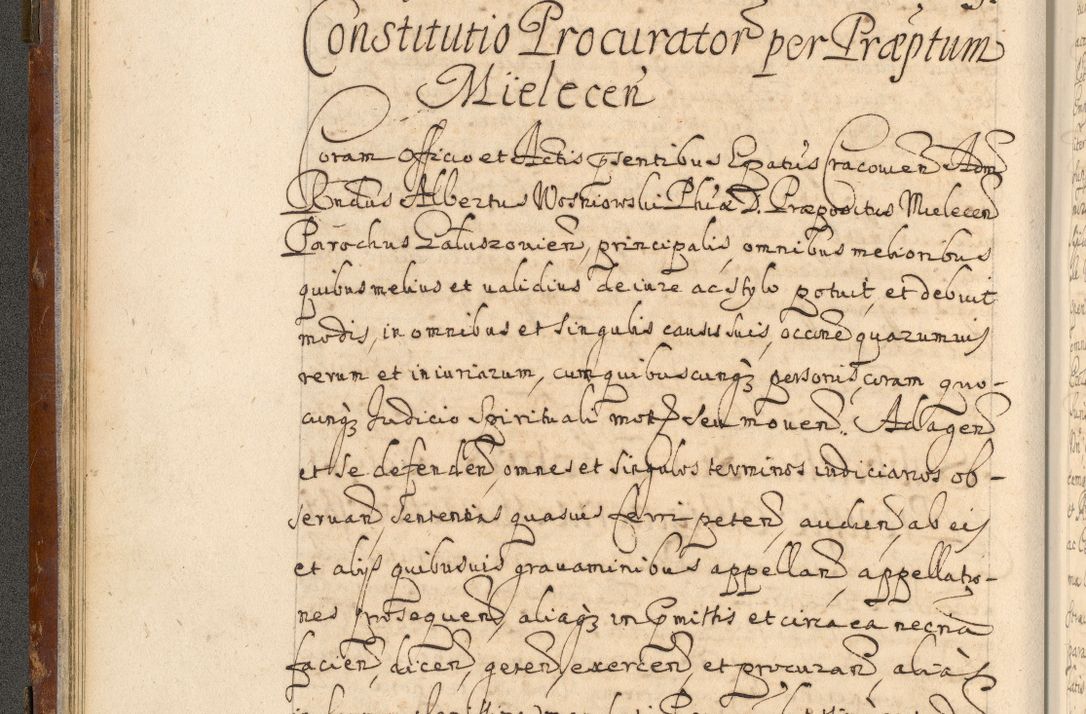 Constitutio Procurator per Præptum
Mielecen
Coram Officio et Actis pntibus Epatus Cracovien Adm
Rndus Albertus Wosniowski Phiæ D. Præpositus Mielecen
Parochus Paluszovien, principalis, omnibus melioribus
quibus melius et validius de iure ac stylo potuit, et debuit
modis, in omnibus et singulis causis suis, occone quarumvis
rerum et iniuriarum, cum quibuscunqz personis, coram quo-
cunqz Iudicio Spirituali mot seu moven. Ad agen
et se defenden, omnes et singulos terminos iudiciarios ob-
servan, sententias quasuis ferri peten, audien, ab eis
et alijs quibusuis grauaminibus appellan, appellatio-
nes prosequen, aliaqz in pmissis et circa ea necria
facien, dicen, geren, exercen, et procuran, alias